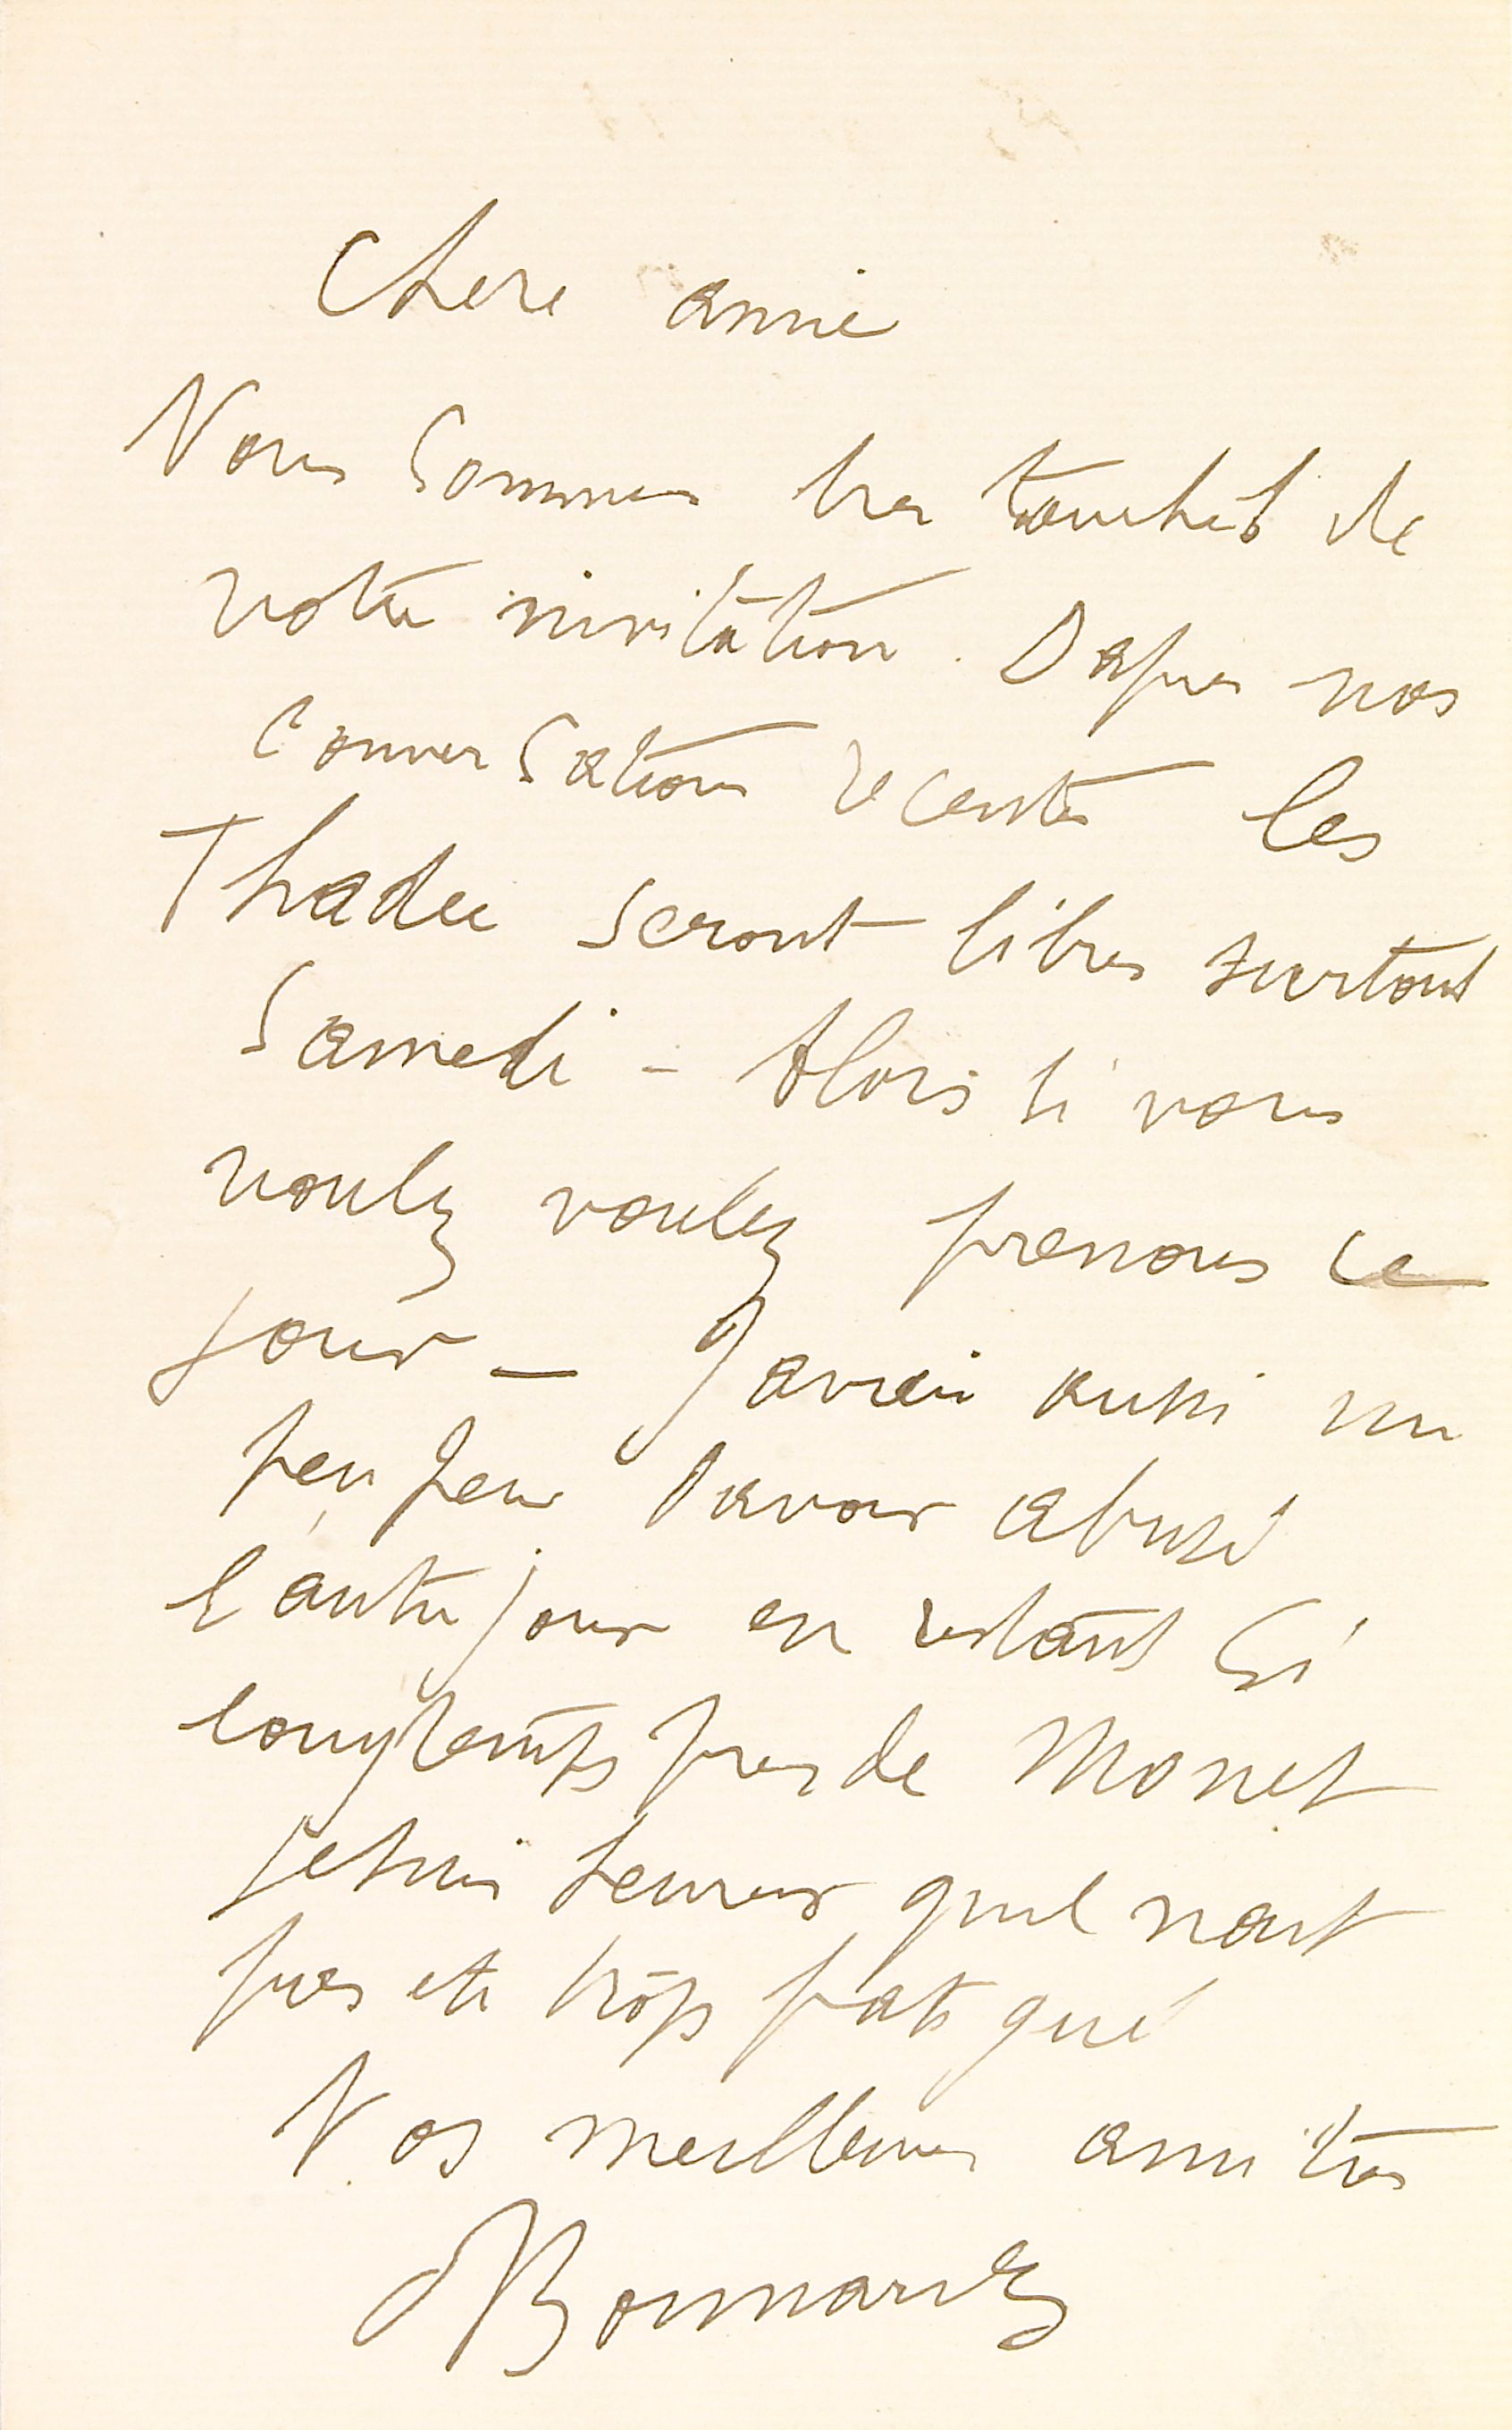 Chere amie
Nous sommes tres touchés de
votre invitation. Dapres nos
conversations recentes les
Thadee seront libres surtout
Samedi – Alors si vous
voulez voulez prenons ce
jour – Javais aussi un
peu peur davoir abusé
lautre jour en restant si
longtemps pres de Monet
je suis heureux quil nait
pas ete trop fatigué
Nos meilleures amitiés
PBonnard